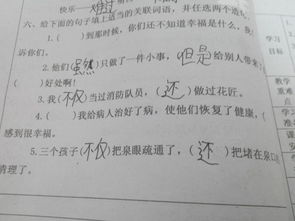 快乐——难过
六、给下面的句子填上适当的关联词语,并任选两个造句
1.( )到那时候,你们还不知道幸福是什么,我
诉你们。
2.他们(虽然)只做了一件小事,但是给别人带来
)好处啊!
3.我(不仅)当过消防队员,(还)做过花匠。
4.( )我给病人治好了病,使他们恢复了健康,(
感到很幸福。
5.三个孩子(不仅)把泉眼疏通了,(还)把堵在泉口
清理了。
学习
目标
教学
重难
点
学习